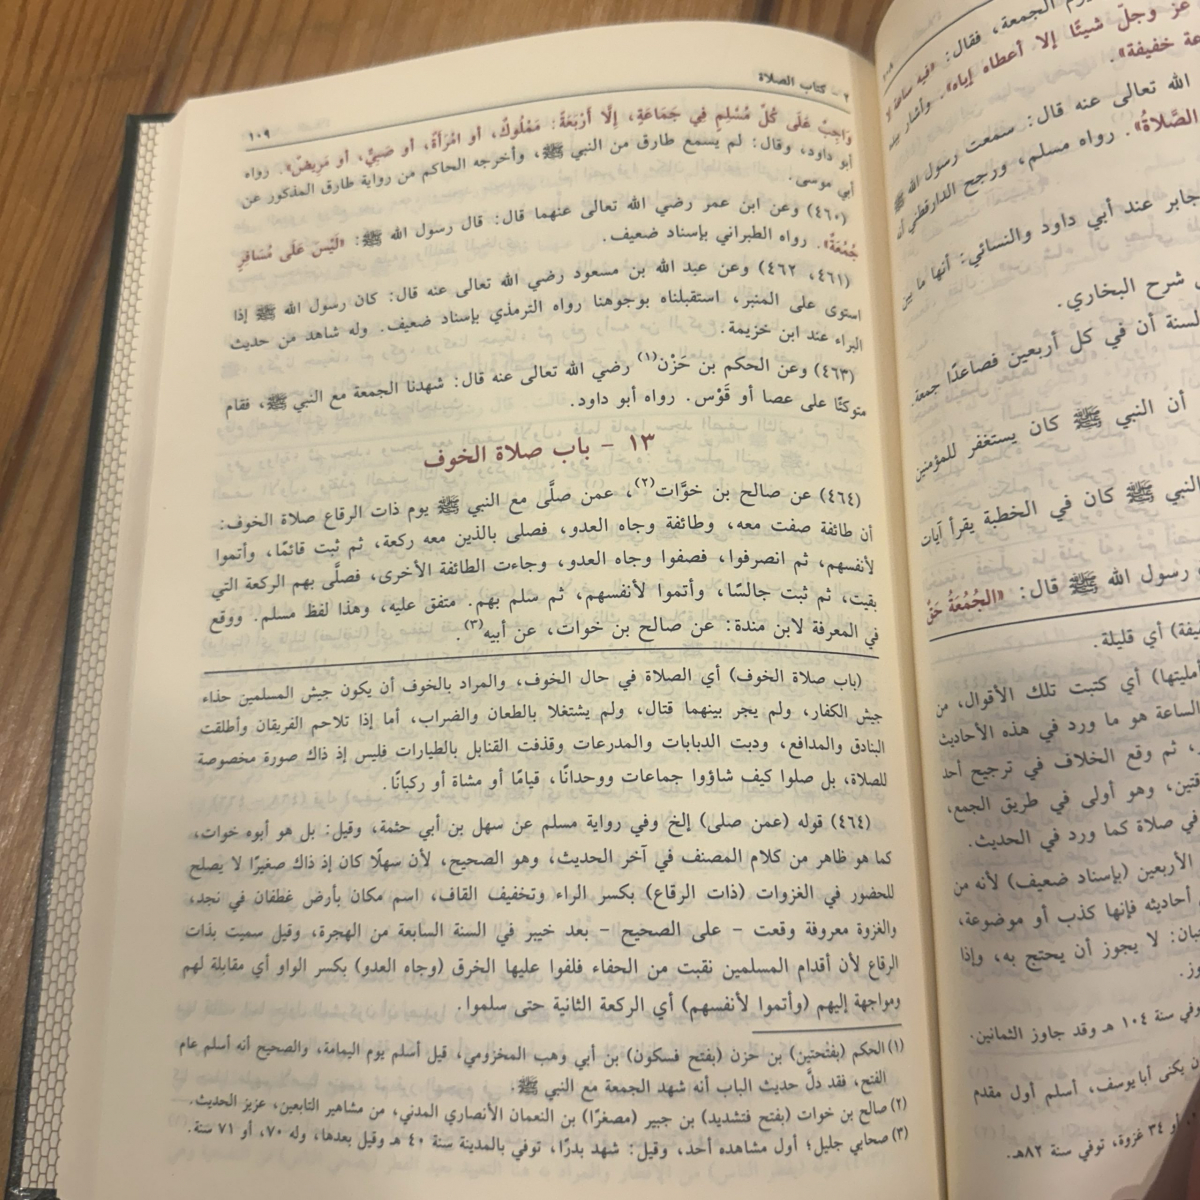 ٢ - كتاب الصلاة
١٠٩
وَاجِبٌ عَلَى كُلِّ مُسْلِمٍ فِي جَمَاعَةٍ، إِلَّا أَرْبَعَةً: مَمْلُوكٌ، أَو امْرَأَةٌ، أو صَبِيٌّ، أو مَرِيضٌ». رواه
أبو داود، وقال: لم يسمع طارق من النبي ﷺ، وأخرجه الحاكم من رواية طارق المذكور عن
أبي موسى.
(٤٦٠) وعن ابن عمر رضي الله تعالى عنهما قال: قال رسول الله ﷺ: «لَيْسَ عَلَى مُسَافِرٍ
جُمُعَةٌ». رواه الطبراني بإسناد ضعيف.
(٤٦١، ٤٦٢) وعن عبد الله بن مسعود رضي الله تعالى عنه قال: كان رسول الله ﷺ إذا
استوى على المنبر، استقبلناه بوجوهنا رواه الترمذي بإسناد ضعيف. وله شاهد من حديث
البراء عند ابن خزيمة.
(٤٦٣) وعن الحكم بن حَزْن(١) رضي الله تعالى عنه قال: شهدنا الجمعة مع النبي ﷺ، فقام
متوكئًا على عصا أو قَوْس. رواه أبو داود.
١٣ - باب صلاة الخوف
(٤٦٤) عن صالح بن خوَّات(٢)، عمن صلَّى مع النبي ﷺ يوم ذات الرقاع صلاة الخوف:
أن طائفة صفت معه، وطائفة وجاه العدو، فصلى بالذين معه ركعة، ثم ثبت قائمًا، وأتموا
لأنفسهم، ثم انصرفوا، فصفوا وجاه العدو، وجاءت الطائفة الأخرى، فصلَّى بهم الركعة التي
بقيت، ثم ثبت جالسًا، وأتموا لأنفسهم، ثم سلم بهم. متفق عليه، وهذا لفظ مسلم. ووقع
في المعرفة لابن مندة: عن صالح بن خوات، عن أبيه(٣).
(باب صلاة الخوف) أي الصلاة في حال الخوف، والمراد بالخوف أن يكون جيش المسلمين حذاء
جيش الكفار، ولم يجر بينهما قتال، ولم يشتغلا بالطعان والضراب، أما إذا تلاحم الفريقان وأطلقت
البنادق والمدافع، ودبت الدبابات والمدرعات وقذفت القنابل بالطيارات فليس إذ ذاك صورة مخصوصة
للصلاة، بل صلوا كيف شاؤوا جماعات ووحدانًا، قيامًا أو مشاة أو ركبانًا.
(٤٦٤) قوله (عمن صلى) إلخ وفي رواية مسلم عن سهل بن أبي حثمة، وقيل: بل هو أبوه خوات،
كما هو ظاهر من كلام المصنف في آخر الحديث، وهو الصحيح، لأن سهلًا كان إذ ذاك صغيرًا لا يصلح
للحضور في الغزوات (ذات الرقاع) بكسر الراء وتخفيف القاف، اسم مكان بأرض غطفان في نجد،
والغزوة معروفة وقعت - على الصحيح - بعد خيبر في السنة السابعة من الهجرة، وقيل سميت بذات
الرقاع لأن أقدام المسلمين نقبت من الحفاء فلفوا عليها الخرق (وجاه العدو) بكسر الواو أي مقابلة لهم
ومواجهة إليهم (وأتموا لأنفسهم) أي الركعة الثانية حتى سلموا.
(١) الحكم (بفتحتين) بن حزن (بفتح فسكون) بن أبي وهب المخزومي، قيل أسلم يوم اليمامة، والصحيح أنه أسلم عام
الفتح، فقد دلَّ حديث الباب أنه شهد الجمعة مع النبي ﷺ.
(٢) صالح بن خوات (بفتح فتشديد) بن جبير (مصغرًا) بن النعمان الأنصاري المدني، من مشاهير التابعين، عزيز الحديث.
(٣) صحابي جليل؛ أول مشاهده أحد، وقيل: شهد بدرًا، توفي بالمدينة سنة ٤٠ هـ وقيل بعدها، وله ٧٠، أو ٧١ سنة.
الجمعة، فقال: «فيه ساعة لا
عز وجلّ شيئًا إلا أعطاه إياه». وأشار بيده
خفيفة».
الله تعالى عنه قال: سمعت رسول الله ﷺ
الصَّلاةُ». رواه مسلم، ورجح الدارقطني أنه
جابر عند أبي داود والنسائي: أنها ما بين
شرح البخاري.
السنة أن في كل أربعين فصاعدًا جمعة.
أن النبي ﷺ كان يستغفر للمؤمنين
النبي ﷺ كان في الخطبة يقرأ آيات
رسول الله ﷺ قال: «الجُمُعَةُ حَقٌّ
أي قليلة.
أي كتبت تلك الأقوال، من
الساعة هو ما ورد في هذه الأحاديث
ثم وقع الخلاف في ترجيح أحد
وهو أولى في طريق الجمع،
في صلاة كما ورد في الحديث.
الأربعين (بإسناد ضعيف) لأنه من
أحاديثه فإنها كذب أو موضوعة،
لا يجوز أن يحتج به، وإذا
سنة ١٠٤ هـ وقد جاوز الثمانين.
يكنى أبا يوسف، أسلم أول مقدم
أو ٣٤ غزوة، توفي سنة ٨٢هـ.